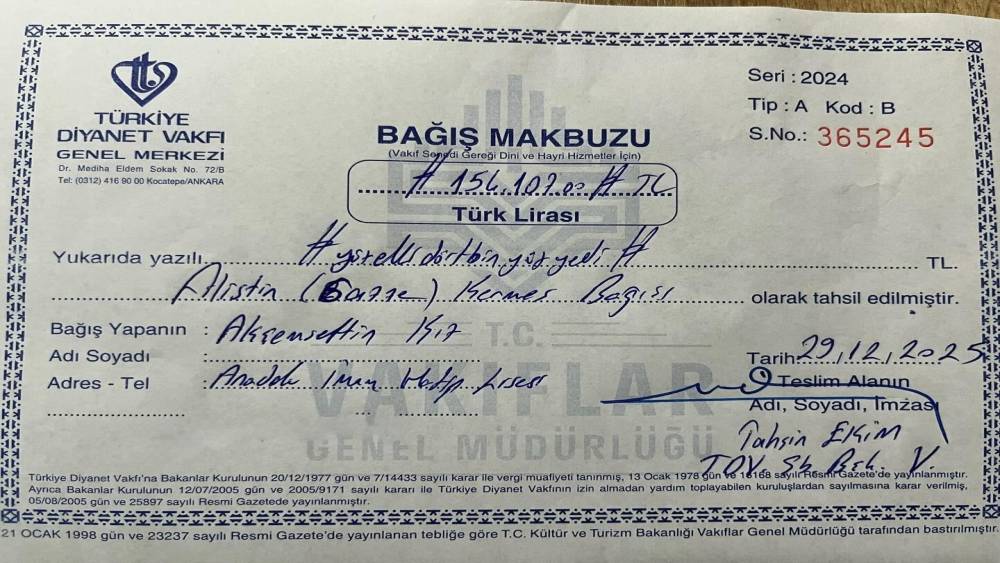 tdv
TÜRKİYE
DİYANET VAKFI
GENEL MERKEZİ
Dr. Mediha Eldem Sokak No. 72/B
Tel: (0312) 416 90 00 Kocatepe/ANKARA
Seri : 2024
Tip : A Kod : B
S.No.: 365245
BAĞIŞ MAKBUZU
(Vakıf Senedi Gereği Dini ve Hayri Hizmetler İçin)
# 154.107.00 # TL
Türk Lirası
Yukarıda yazılı # yüzellidörtbinyüzyedi # TL.
Filistin (Gazze) Kermes Bağışı olarak tahsil edilmiştir.
Bağış Yapanın : Akşemsettin Kız
Adı Soyadı :
Adres - Tel : Anadolu İmam Hatip Lisesi
T.C.
VAKIFLAR
GENEL MÜDÜRLÜĞÜ
Tarih 29.12.2025
Teslim Alanın
Adı, Soyadı, İmzası
Tahsin EKİM
TDV Şb Bşk. V.
Türkiye Diyanet Vakfı'na Bakanlar Kurulunun 20/12/1977 gün ve 7/14433 sayılı karar ile vergi muafiyeti tanınmış, 13 Ocak 1978 gün ve 16168 sayılı Resmi Gazete'de yayınlanmıştır.
Ayrıca Bakanlar Kurulunun 12/07/2005 gün ve 2005/9171 sayılı kararı ile Türkiye Diyanet Vakfının izin almadan yardım toplayabilen kuruluşlardan sayılmasına karar verilmiş,
05/08/2005 gün ve 25897 sayılı Resmi Gazetede yayınlanmıştır.
21 OCAK 1998 gün ve 23237 sayılı Resmi Gazete'de yayınlanan tebliğe göre T.C. Kültür ve Turizm Bakanlığı Vakıflar Genel Müdürlüğü tarafından bastırılmıştır.